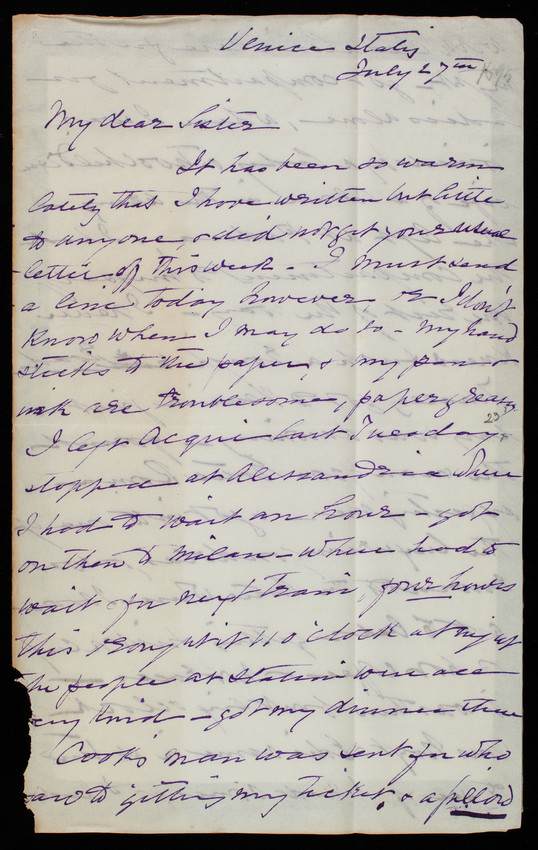 Venice Italy
July 27th
My dear Sister
It has been so warm
lately that I have written but little
to anyone & did not get your usual
letter off this week - I must send
a line today however, or I don't
know when I may do so - my hand
sticks to the paper, & my pen &
ink are troublesome, paper greasy
I left Acqui last Tuesday 23d
stopped at Alessandria where
I had to wait an hour - got
on then to Milan - where had to
wait for next train, four hours
this brought it 11 o'clock at night
the people at Station were all
very kind - got my dinner there
Cook's man was sent for who
to getting my ticket, & a pillow